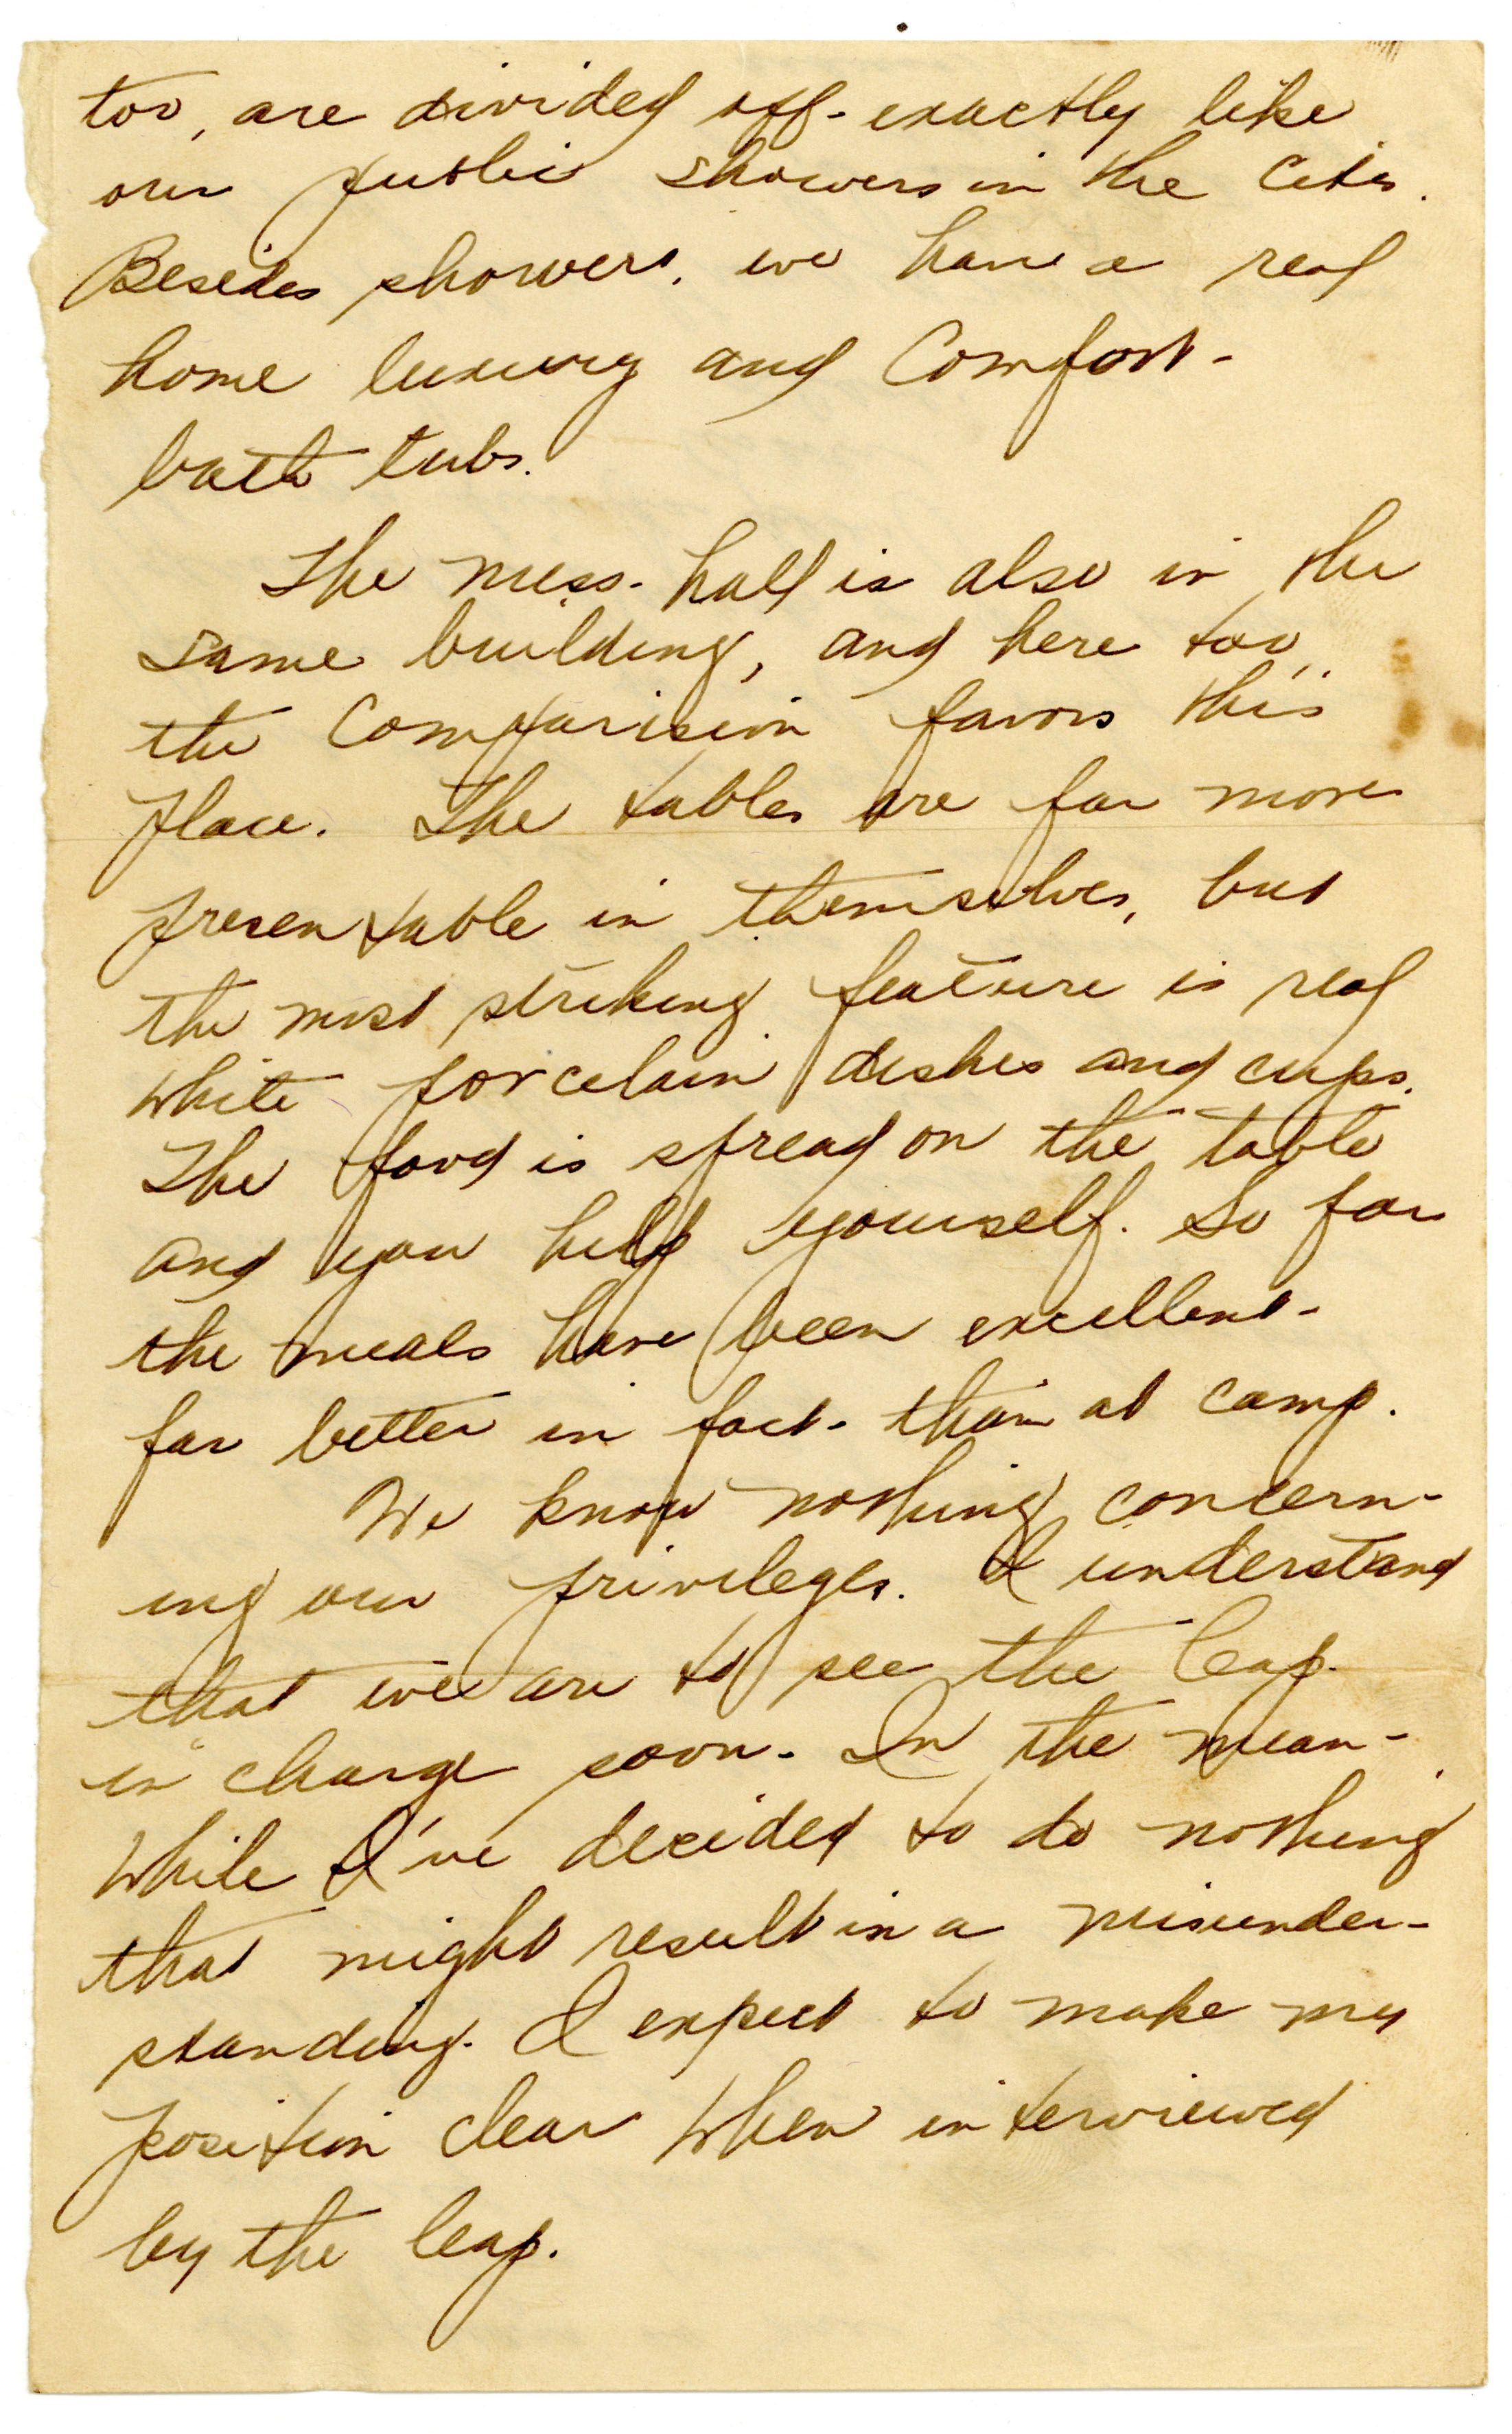 too, are divided off - exactly like
our public showers in the cities.
Besides showers, we have a real
home luxury and comfort -
bath tubs.
The mess-hall is also in the
same building, and here too,
the comparision favors this
place. The tables are far more
presentable in themselves, but
the most striking feature is real
white porcelain dishes and cups.
The food is spread on the table
and you help yourself. So far
the meals have been excellent -
far better in fact - than at camp.
We know nothing concern-
ing our privileges. I understand
that we are to see the Cap.
in charge soon. In the mean-
while I've decided to do nothing
that might result in a misunder-
standing. I expect to make my
position clear when interviewed
by the Cap.